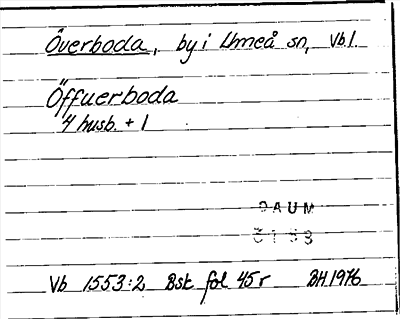 Överboda, by i Umeå sn, Vb l.
Öffuerboda
4 husb. + 1
DAUM
Vb 1553:2 Bsk fol 45r BH 1976